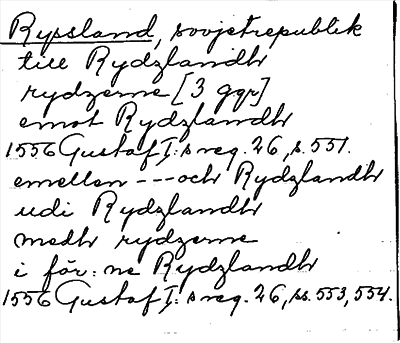 Ryssland, sovjetrepublik
till Rydzlandh
rydzerne [3 ggr]
emot Rydzlandh
1556 Gustaf I:s reg. 26, s. 551.
emellan --- och Rydzlandh
udi Rydzlandh
medh rydzerne
i för:ne Rydzlandh
1556 Gustaf I:s reg. 26, ss. 553, 554.